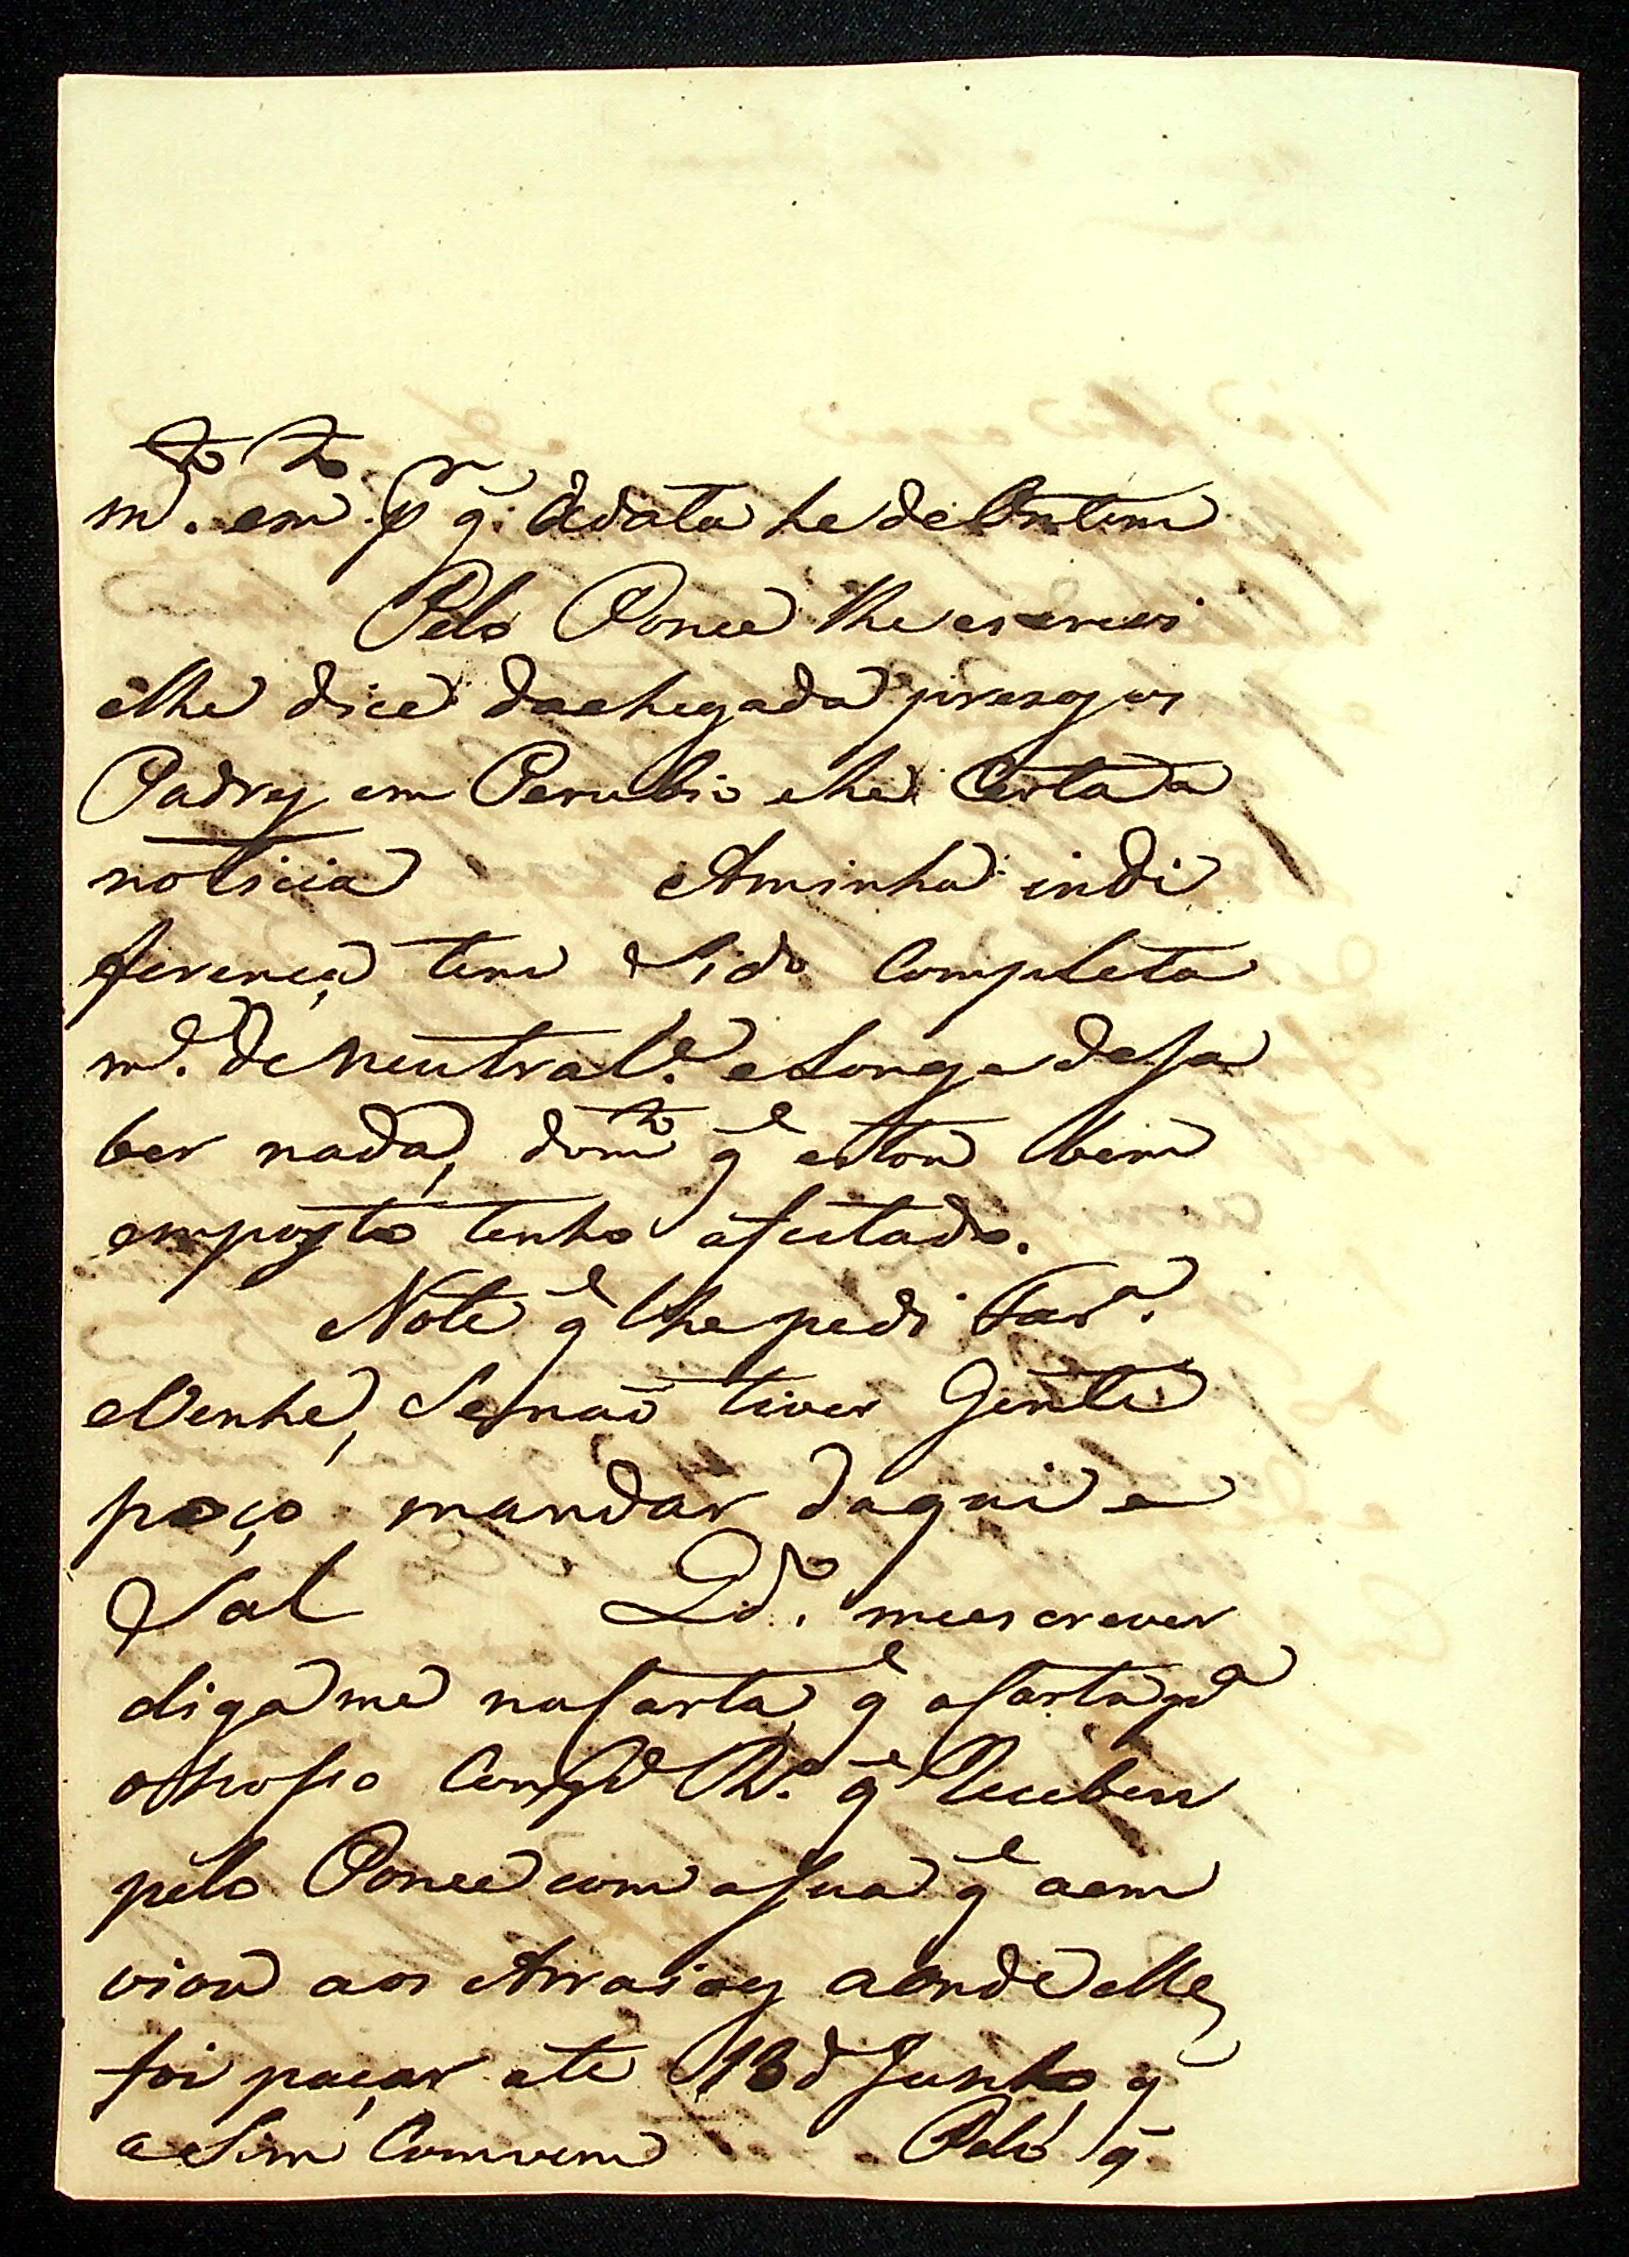 m.to em.to pr q. adata he de Ontem
Pelo Ponce lhe escrevi
elhe dice dachegada prezos os
Padres em Perubio ehe Certa a
noticia Aminha indi
ferença tem Sido Completa
m.e de neutral.e eLonge de Sa
ber nada, dom.to q.e estou bem
emposto tenho afetado.
Note q.e lhe pedi Far.a
eVenhe, Senão tiver Gente
poço mandar daqui e
Sal Qd.o meescrever
digame naCarta q.e aCarta p.a
o Conf.d R.o q.e Recebeu
pelo Ponce com aSua q.e aem
viou aos Arraioes aonde elle
foi paçar ate 13 d Junho, q.
aSim Comvem Pelo q.